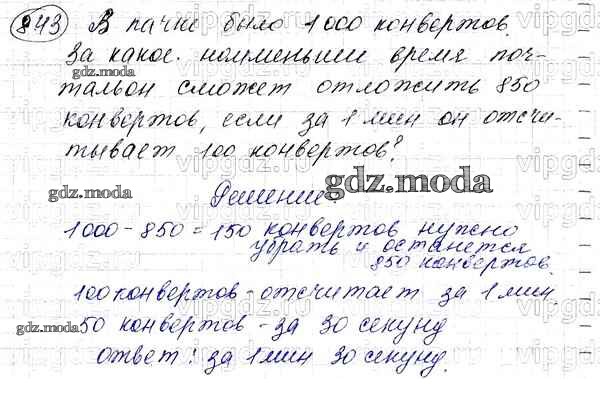 843 В пачке было 1000 конвертов.
За какое наименьшее время поч-
gdz.moda
тальон сможет отложить 850
конвертов, если за 1 мин он отсчи-
тывает 100 конвертов?
gdz.moda
gdz.moda
Решение
1000 - 850 = 150 конвертов нужно
убрать и останется
850 конвертов.
100 конвертов - отсчитает за 1 мин.
gdz.moda
50 конвертов - за 30 секунд
ответ: за 1 мин 30 секунд.